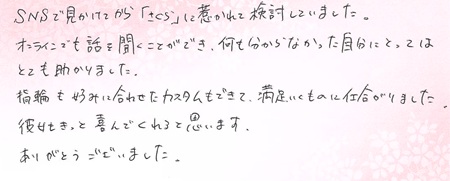 SNSで見かけてから「さくら」に惹かれて検討していました。
オンラインでも話を聞くことができ、何も分からなかった自分にとっては
とても助かりました。
指輪も好みに合わせたカスタムもできて、満足いくものに仕合がりました。
彼女もきっと喜んでくれると思います。
ありがとうございました。